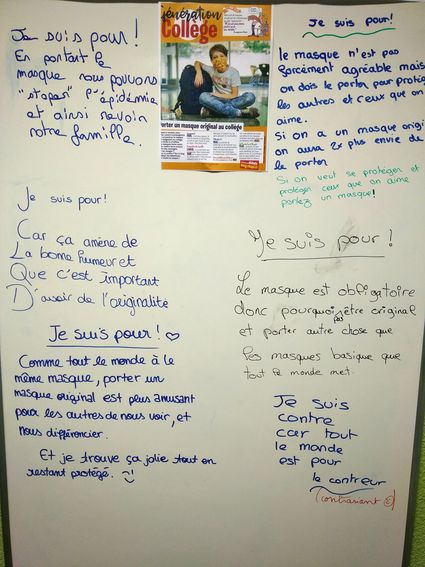 Je suis pour !
En portant le
masque nous pouvons
"stoper" l'épidémie
et ainsi revoir
notre famille.
génération
Collège
Porter un masque original au collège
Je suis pour !
le masque n'est pas
forcément agréable mais
on dois le porter pour protég
les autres et ceux que on
aime.
Si on a un masque origi
on aura 2x plus envie de
le porter
Si on veut se protéger et
protéger ceux que on aime
portez un masque !
Je suis pour !
Car ça amène de
La bonne humeur et
Que c'est important
D'avoir de l'originalité
Je suis pour !
Le masque est obligatoire
donc pourquoi pas être original
et porter autre chose que
les masques basique que
tout le monde met.
Je suis pour ! ♡
Comme tout le monde à le
même masque, porter un
masque original est plus amusant
pour les autres de nous voir, et
nous différencier.
Et je trouve ça jolie tout en
restant protégé. :)
Je suis
contre
car tout
le monde
est pour
le contreur
(contrariant ☺)